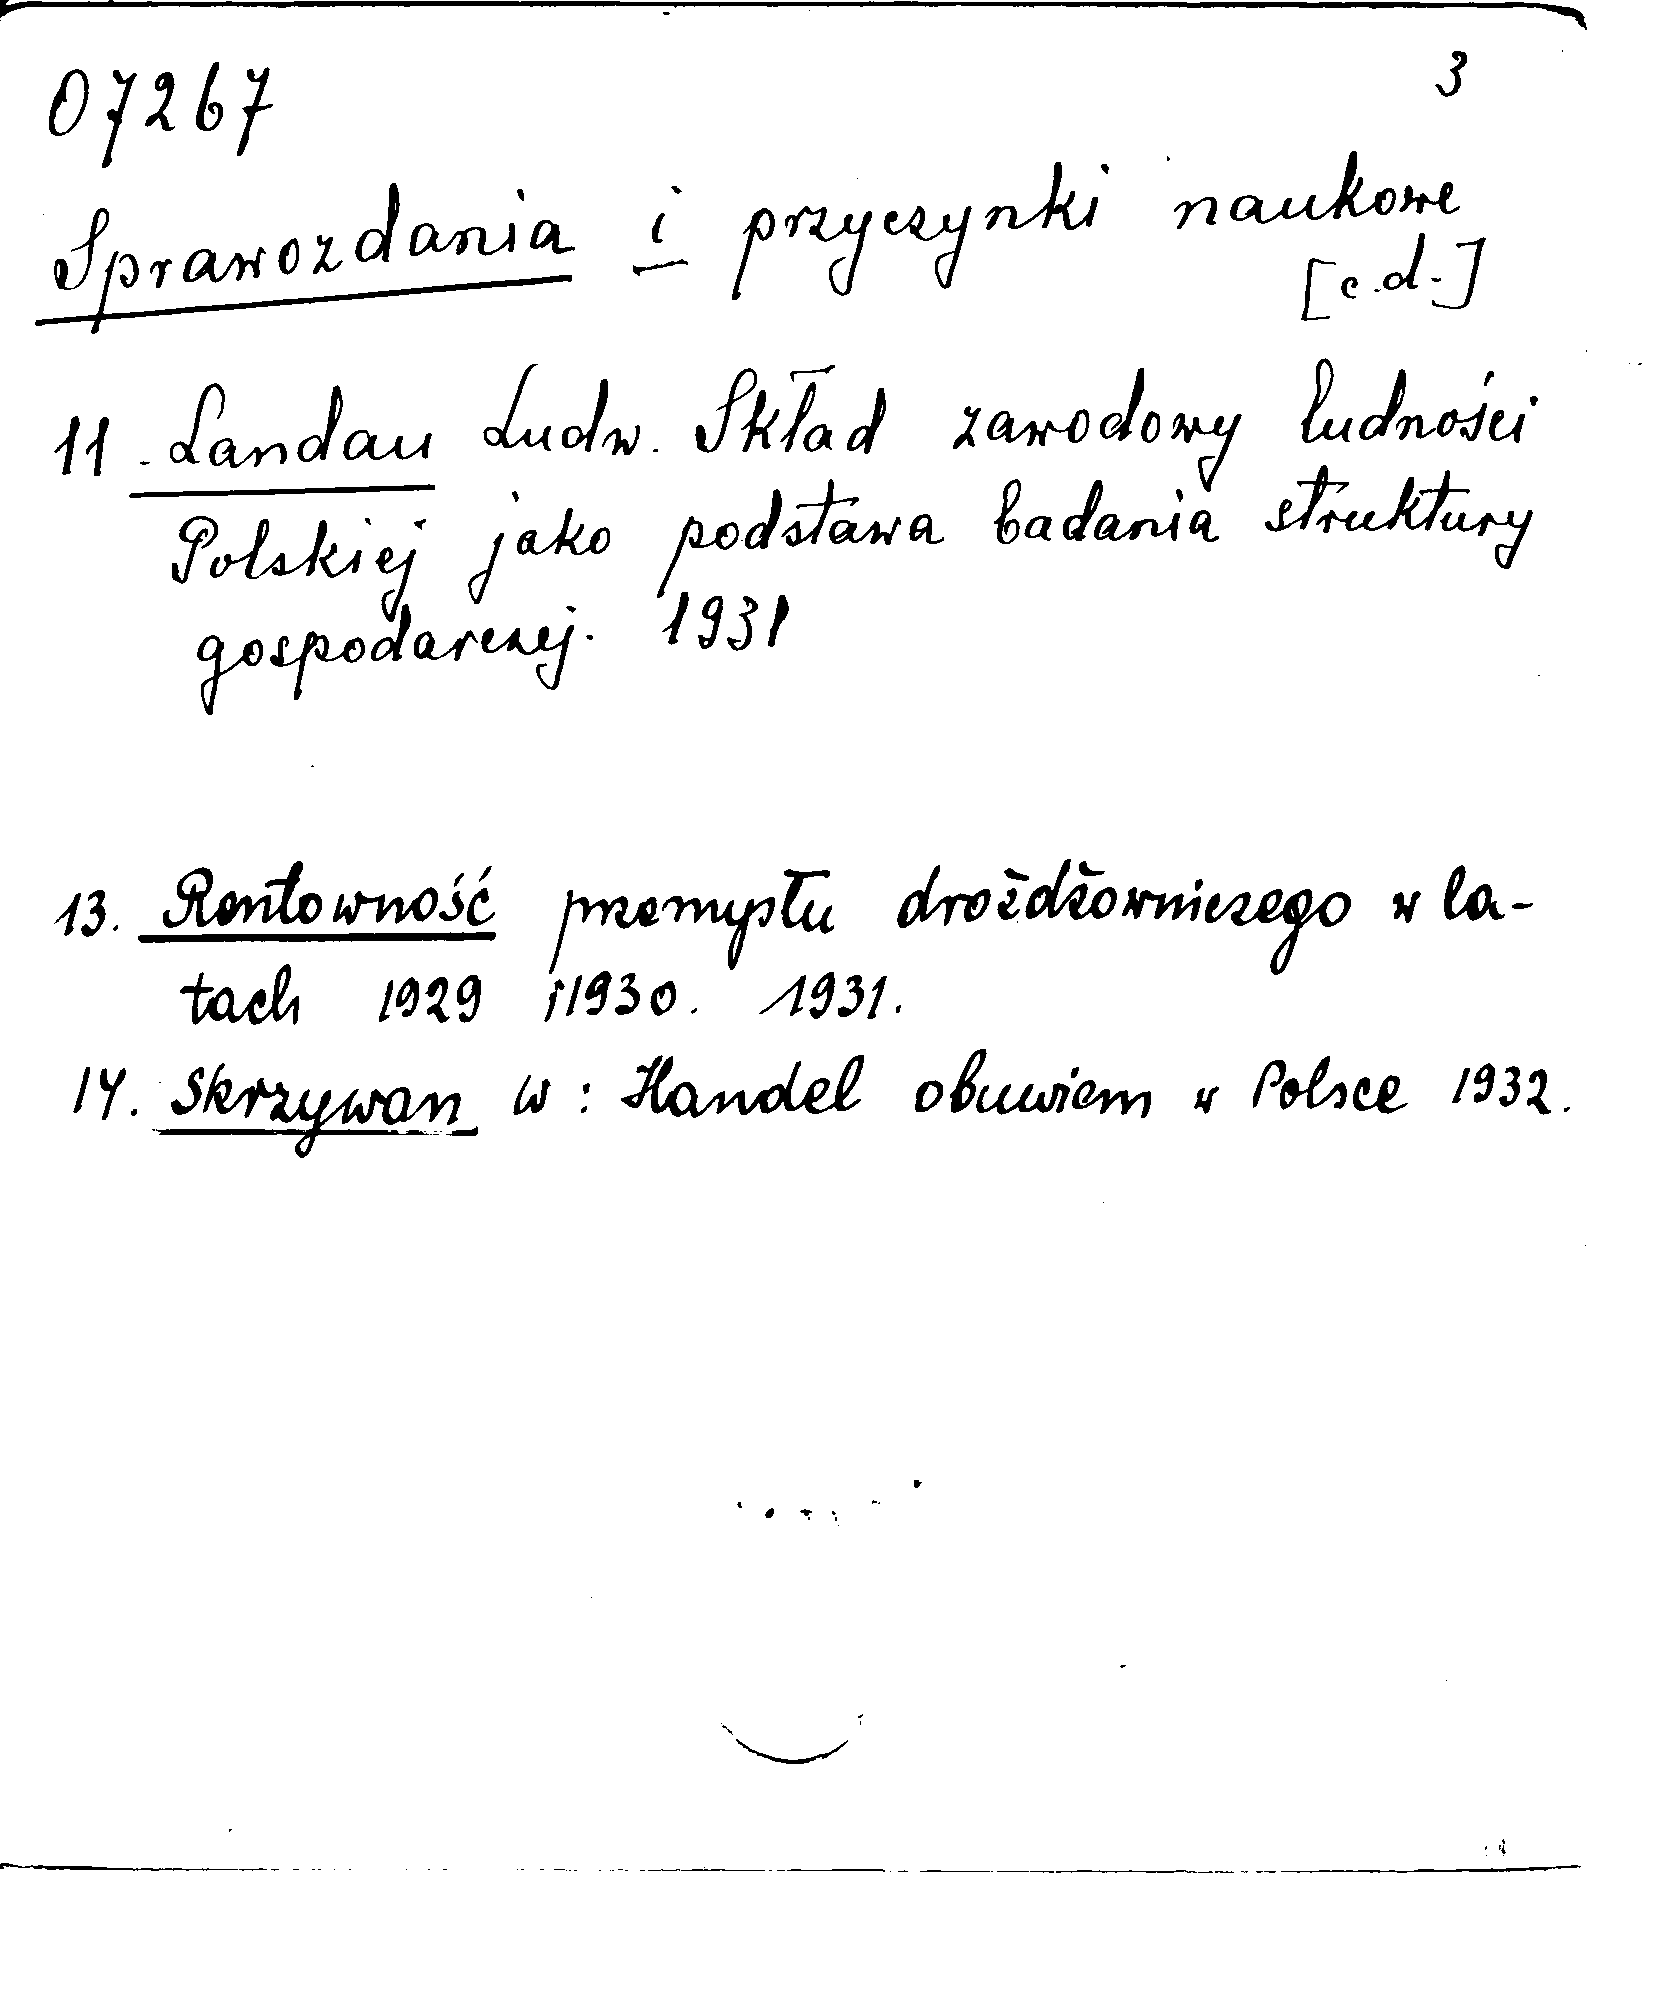 07267
3
Sprawozdania i przyczynki naukowe
[c.d.]
11. Landau Ludw. Skład zawodowy ludności
Polskiej jako podstawa badania struktury
gospodarczej. 1931
13. Rentowność przemysłu drożdżowniczego w la-
tach 1929 i 1930. 1931.
14. Skrzywan W: Handel obuwiem w Polsce 1932.